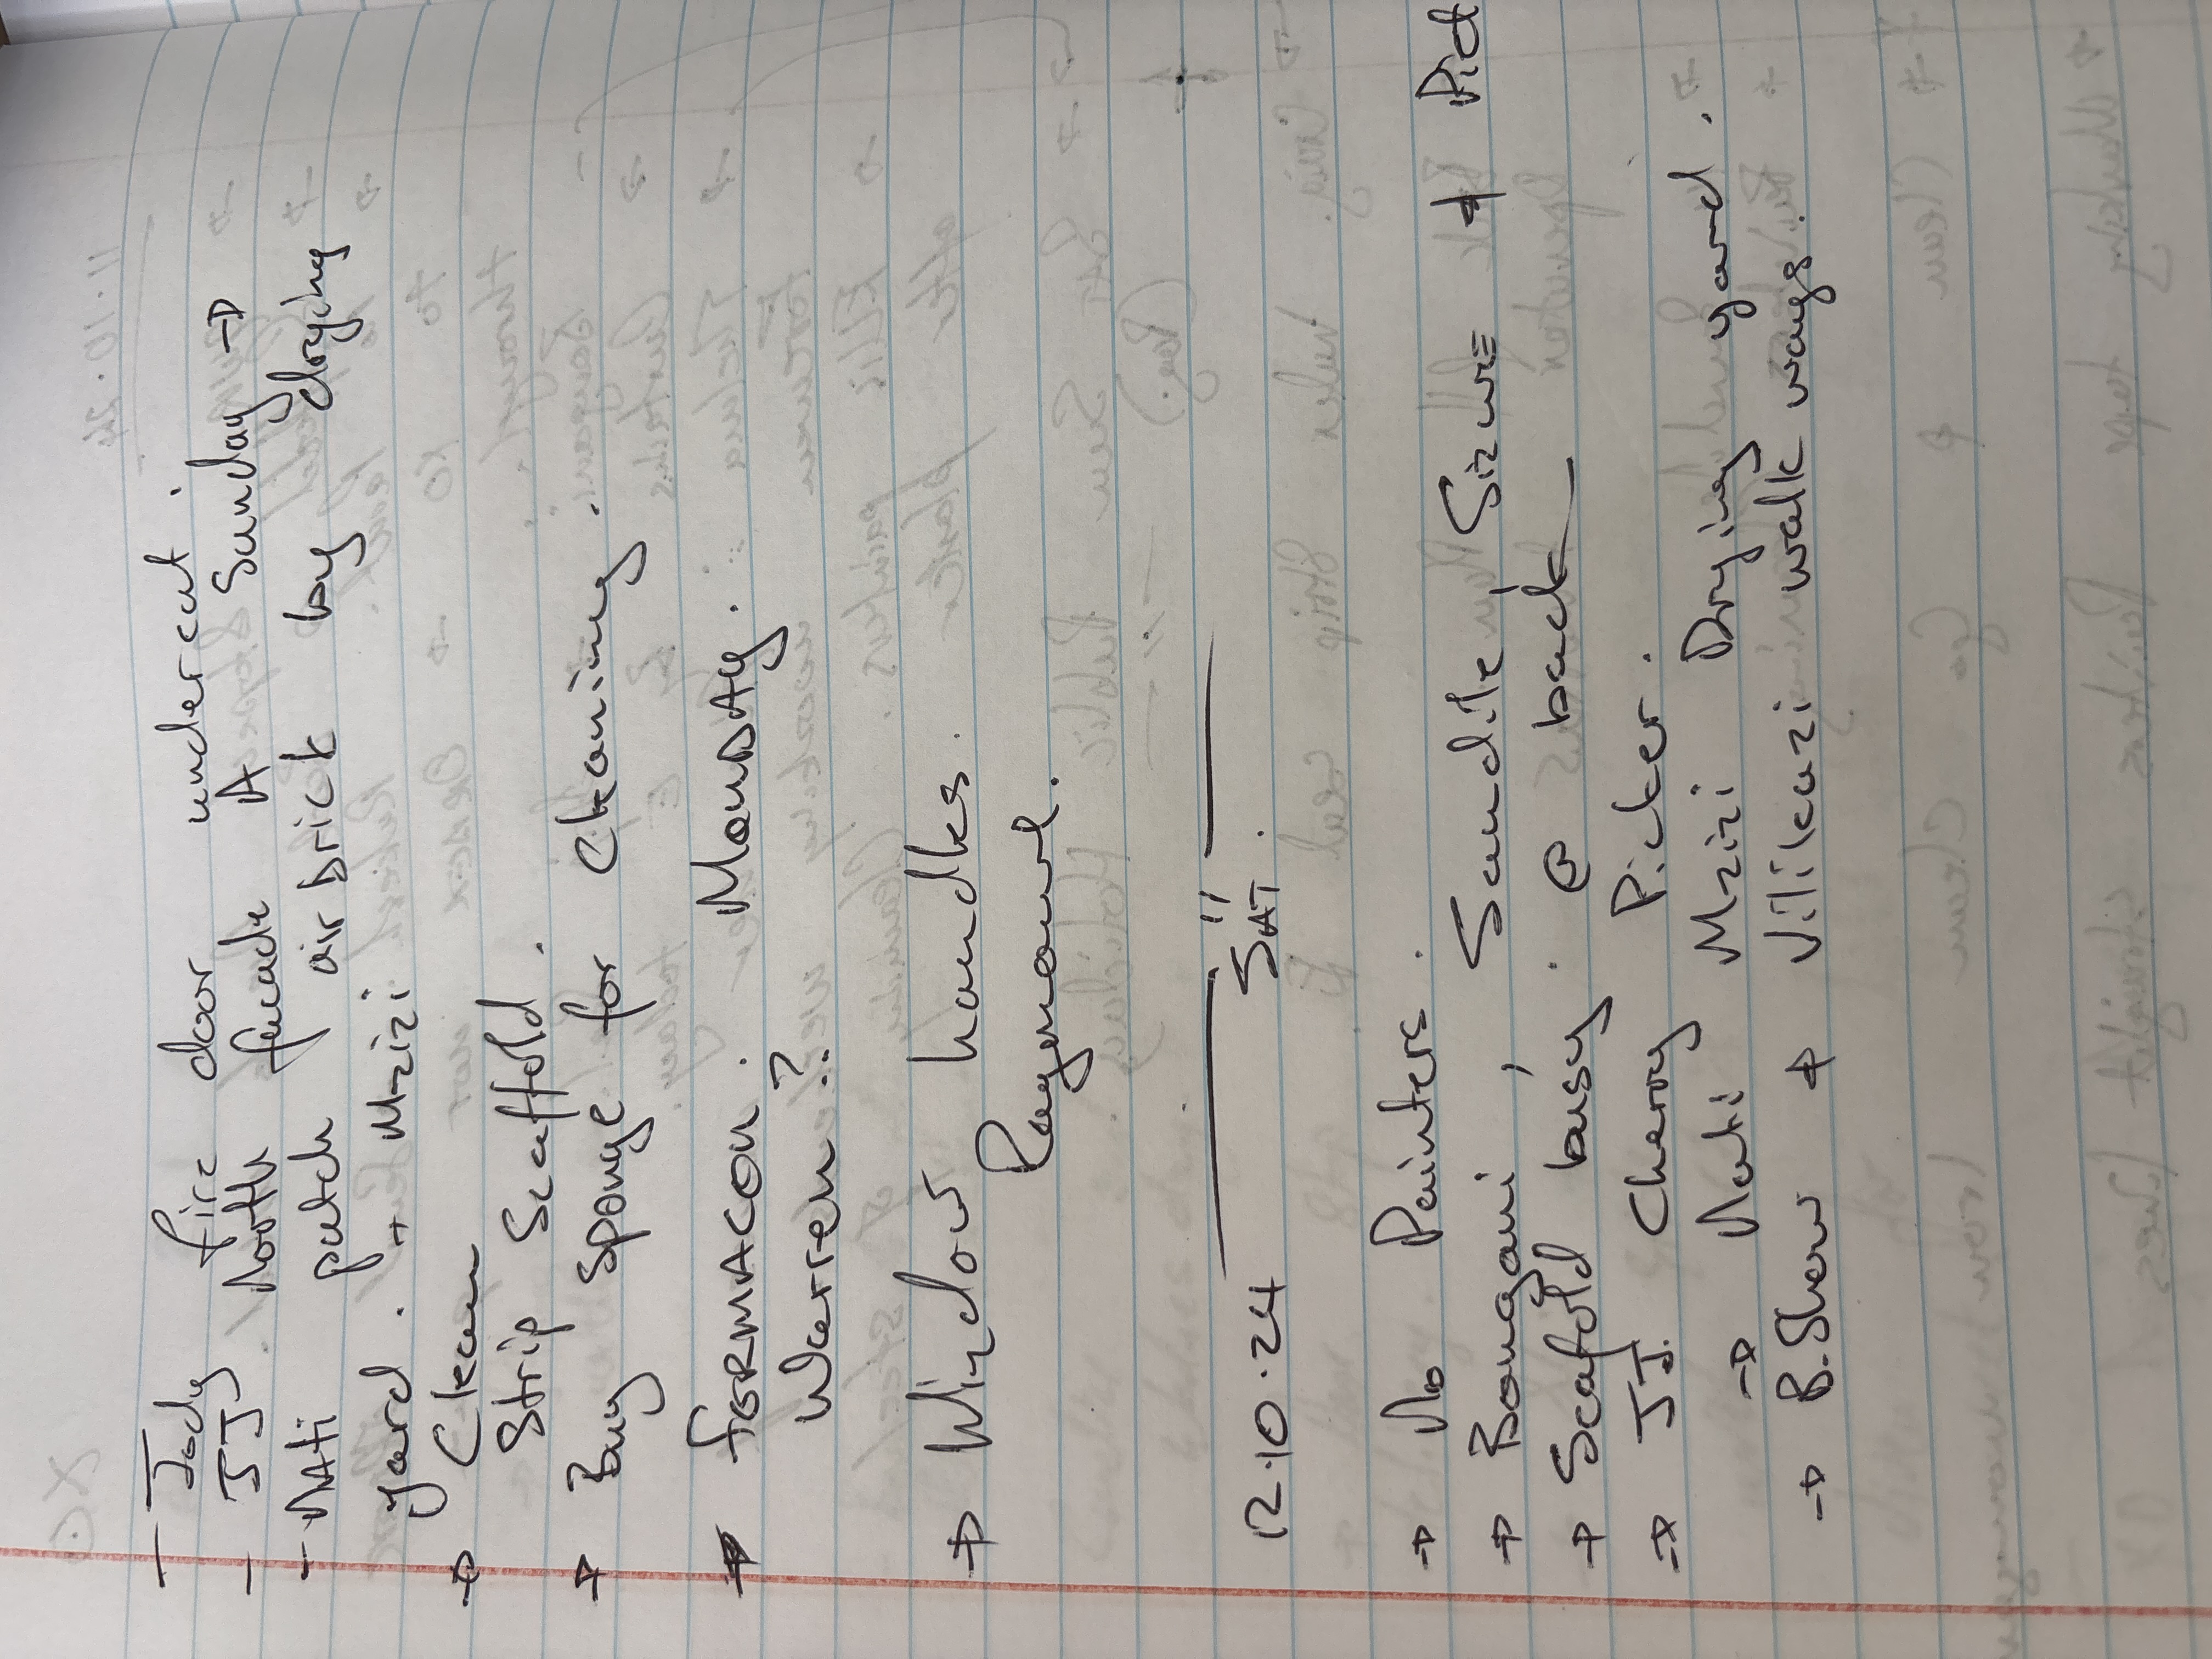 - Jody fire door undercut.
- JJ North facade A Sunday →
- Nati patch air brick by drying
yard. + Mzizi
→ Clean
Strip Scaffold.
→ Buy sponge for cleaning.
→ FERMACON. MONDAY.
Warren?
→ Window handles.
Raymond.
12.10.24 " SAT.
→ No Painters.
→ Bongani, Sandile, Sizwe +
→ Scaffold busy. @ back
→ JJ. Cherry Picker.
→ Nati Mzizi Drying yard.
→ B.Shew + Vilikazi walk ways.